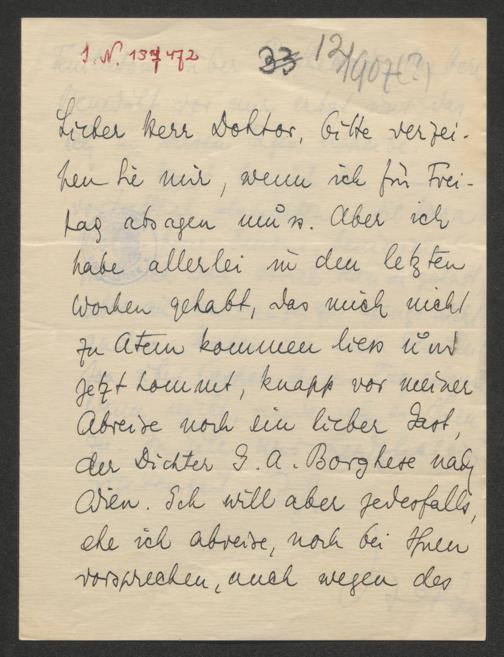 I.N. 137472
33 12/1907(?)
Lieber Herr Doktor, bitte verzei-
hen Sie mir, wenn ich für Frei-
tag absagen muss. Aber ich
habe allerlei in den letzten
Wochen gehabt, das mich nicht
zu Atem kommen liess und
jetzt kommt, knapp vor meiner
Abreise noch ein lieber Gast,
der Dichter G. A. Borghese nach
Wien. Ich will aber jedesfalls,
ehe ich abreise, noch bei Ihnen
vorsprechen, auch wegen des